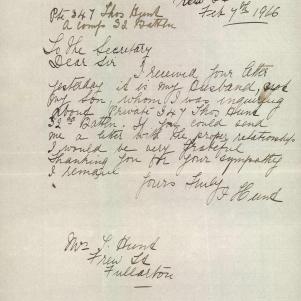 Frew St
Feb 7th 1916
Pte 347 Thos Hunt
A Comp 32 Battln
To the Secretary
Dear Sir
I received your letter
yesterday it is my Husband, not
my son, whom I was inquiring
about Private 347 Thos Hunt
32nd Battln. If you could send
me a letter with the proper relationship
I would be very grateful
Thanking you for your sympathy
I remain
Yours Truly
F Hunt
Mrs F. Hunt
Frew St
Fullarton